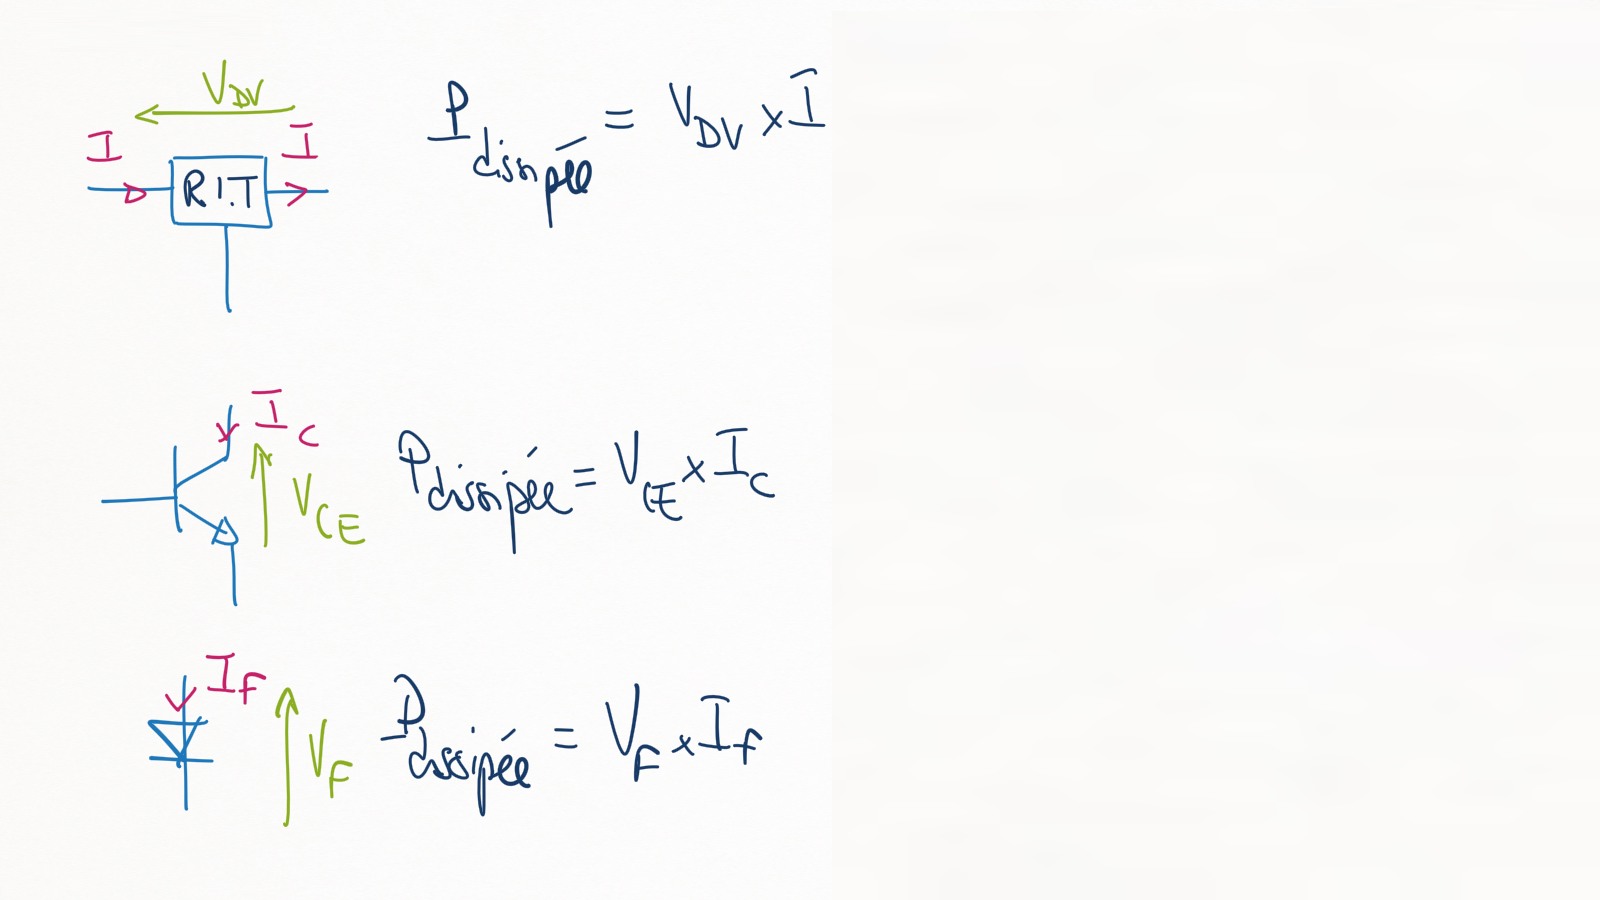 V_DV
I I
R.I.T
P_dissipée = V_DV x I
I_C
V_CE
P_dissipée = V_CE x I_C
I_F
V_F
P_dissipée = V_F x I_f